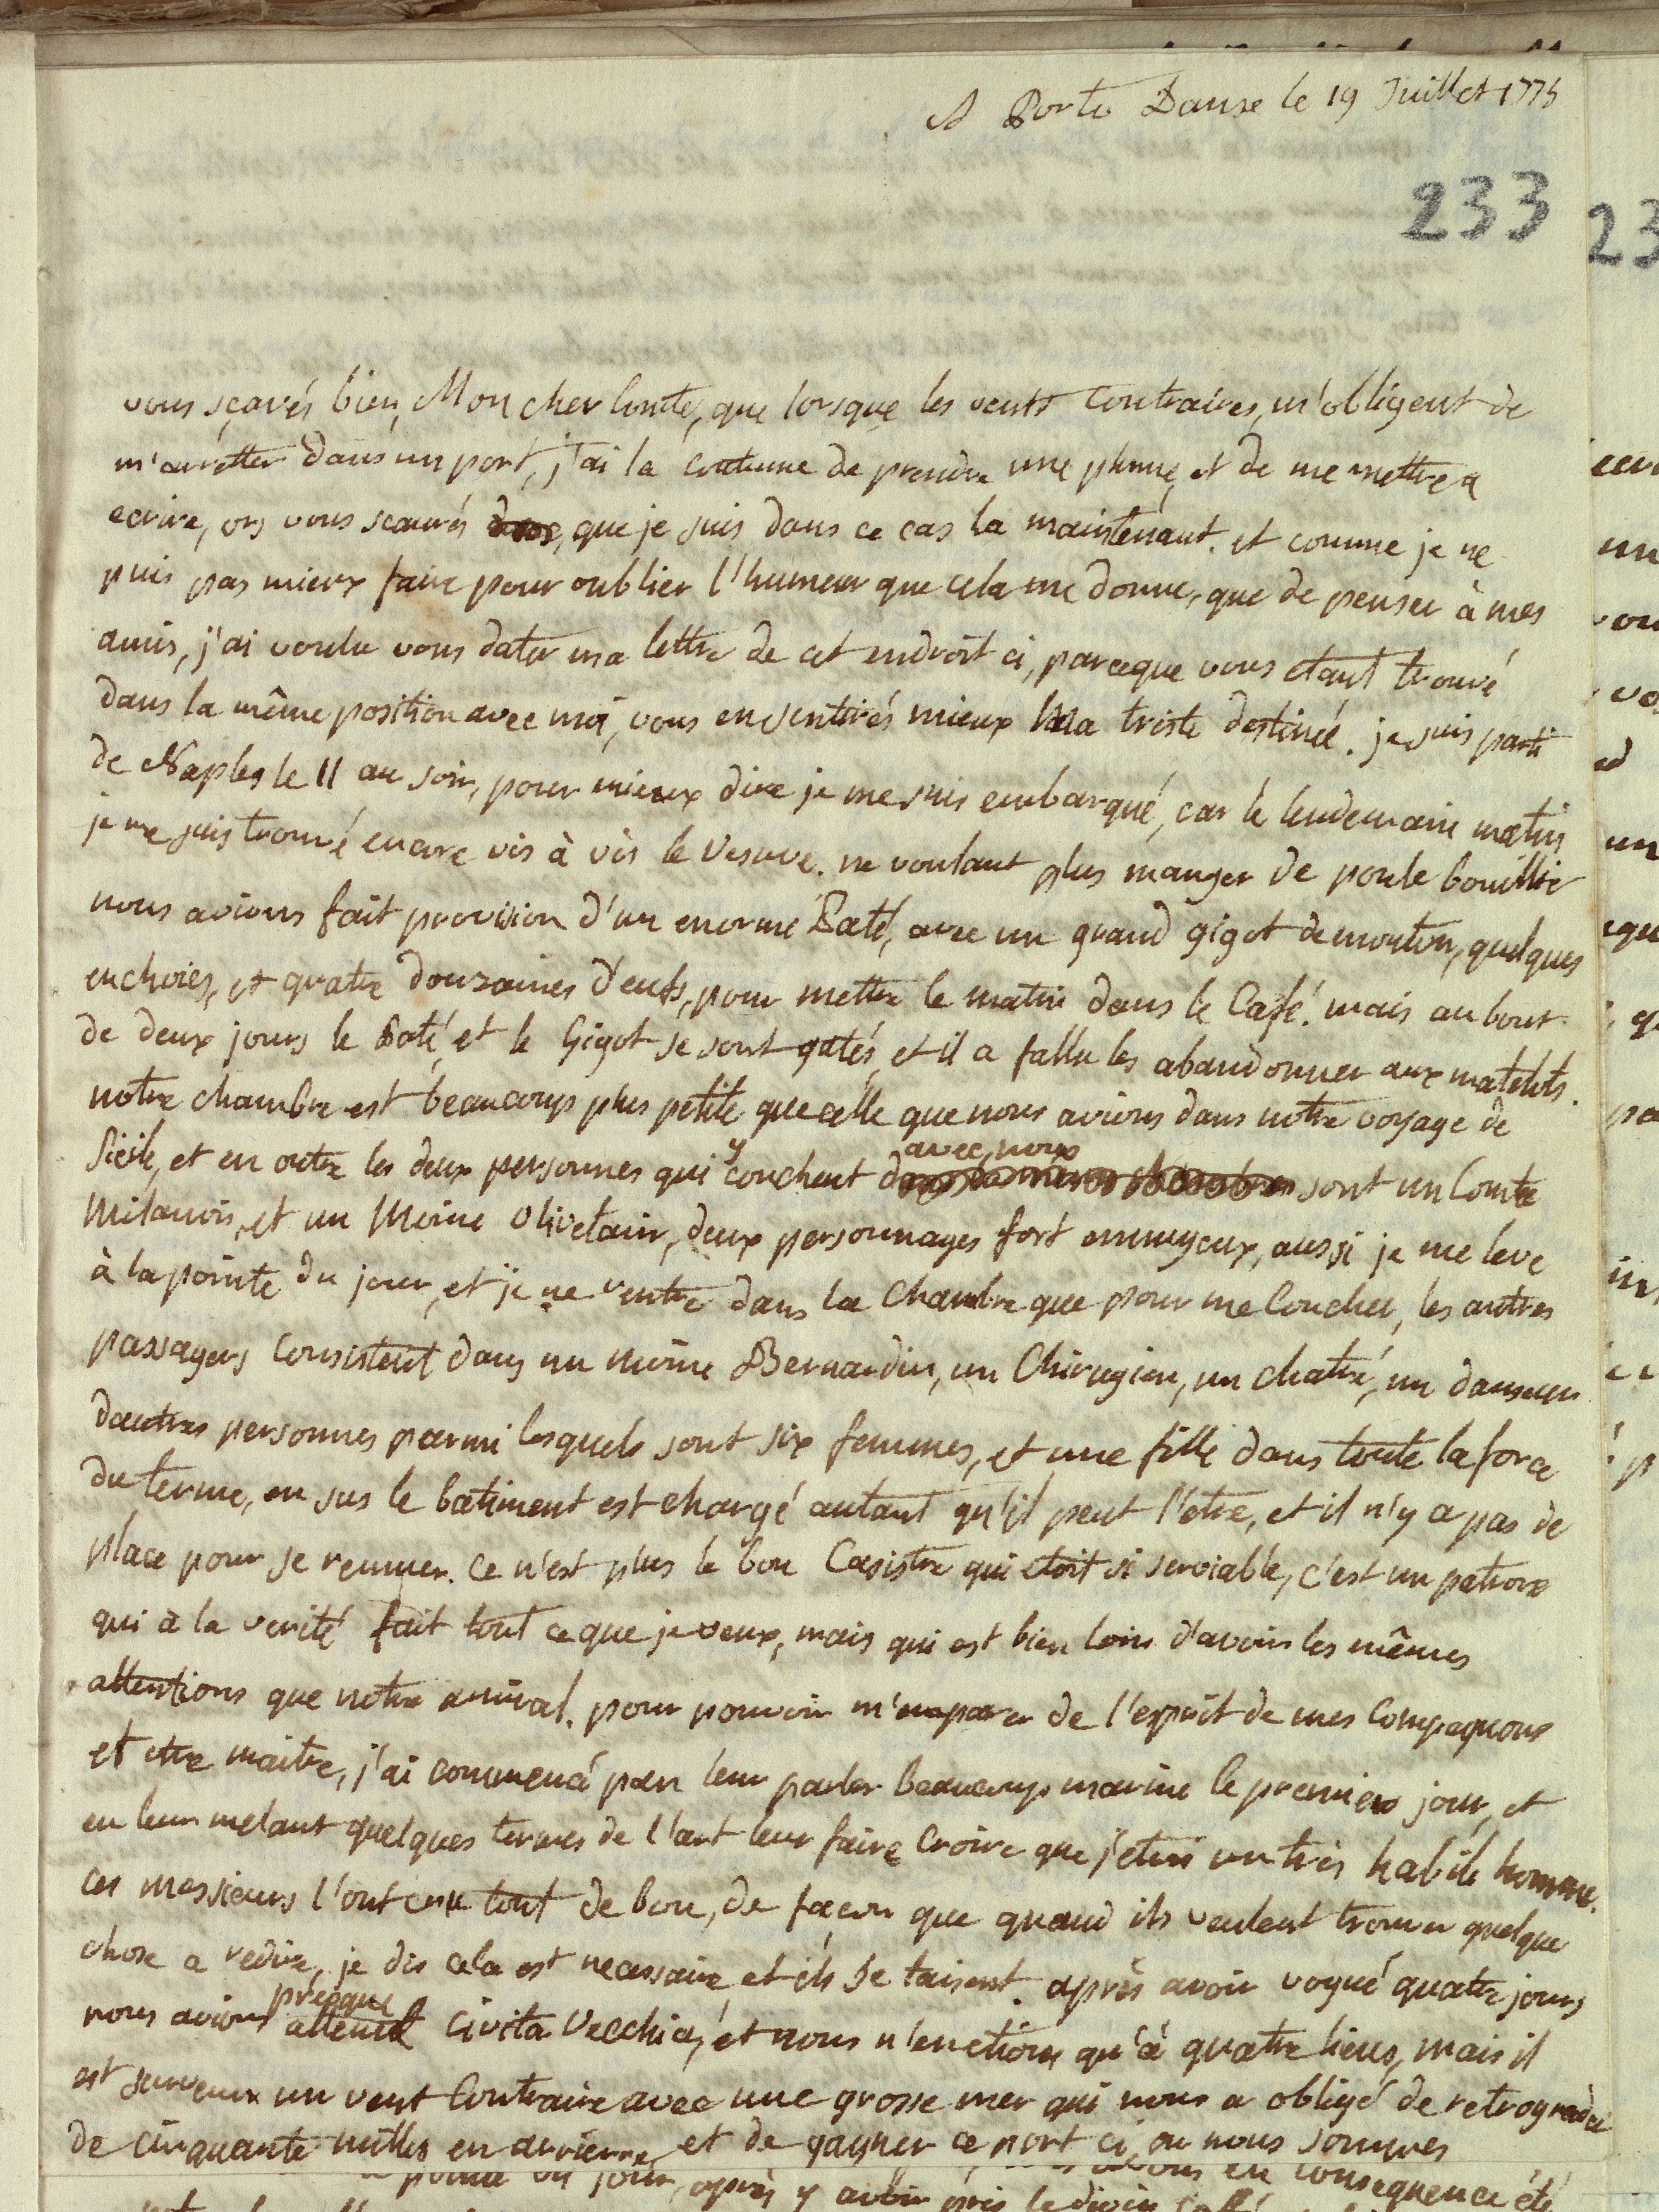 A Porto Danze le 19 Juillet 1775
233
vous sçavés bien, Mon cher Comte, que lorsque les vents contraires, m'obligent de
m'arretter dans un port, j'ai la coutume de prendre une plume, et de me mettre a
ecrire, ors vous scaurés que je suis dans ce cas la maintenant. et comme je ne
puis pas mieux faire pour oublier l'humeur que cela me donne, que de penser à mes
amis, j'ai voulu vous dater ma lettre de cet endroit ci, parceque vous etant trouvé
dans la même position avec moi, vous en sentirés mieux ma triste destinée. je suis parti
de Naples le 11 au soir, pour mieux dire je me suis embarqué, car le lendemain matin
je me suis trouvé encore vis à vis le Vesuve. ne voulant plus manger de poule bouillie
nous avions fait provision d'un enorme Paté, avec un grand gigot de mouton, quelques
enchoies, et quatre douzaines d'eufs, pour mettre le matin dans le Café. mais au bout
de deux jours le Paté, et le Gigot se sont gatés, et il a fallu les abandonner aux matelots.
notre chambre est beaucoup plus petite que celle que nous avions dans notre voyage de
Sicile, et en outre les deux personnes qui y couchent avec nous sont un Comte
Milanois, et un Moine Olivetain, deux personnages fort ennuyeux, aussi je me leve
à la pointe du jour, et je ne rentre dans la Chambre que pour me Coucher, les autres
passagers Consistent dans un moine Bernardin, un Chirugien, un chatré, un danseur
dautres personnes parmi lesquels sont six femmes, et une fille dans toute la force
du terme, en sus le batiment est chargé autant qu'il peut l'etre, et il n'y a pas de
place pour se remuer. Ce n'est plus le bon Casistre qui etoit si serviable, c'est un patron
qui à la verité fait tout ce que je veux, mais qui est bien loin d'avoir les mêmes
attentions que notre amiral. pour pouvoir m'emparer de l'esprit de mes Compagnons
et etre maitre, j'ai commencé par leur parler beaucoup marine le premier jour, et
en leur melant quelques termes de l'art leur faire Croire que j'etois un très habile homme.
ces messieurs l'ont cru tout de bon, de façon que quand ils veulent trouver quelque
chose a redire, je dis cela est necessaire, et ils se taisent. après avoir vogué quatre jours
nous avions presque atteint Civita Vecchia, et nous n'en etions qu'à quatre lieus, mais il
est survenu un vent Contraire avec une grosse mer qui nous a obligé de retrograder
de cinquante milles en arriere, et de gagner ce port ci, ou nous sommes
pointe du jour, après y avoir pris le divin Caffé en consequence été